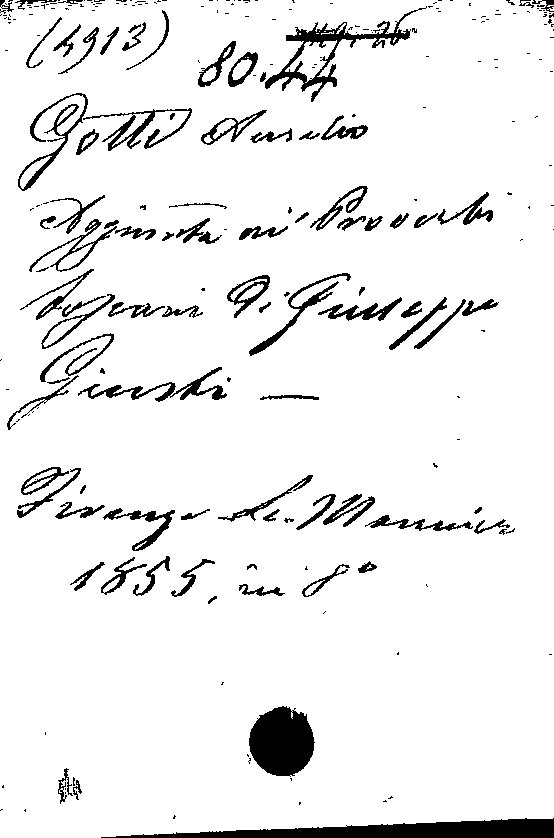 (4913)
80.44
Gotti Aurelio
Aggiunta ai Proverbi
Toscani di Giuseppe
Giusti —
Firenze Le-Monnier
1855, in 8º